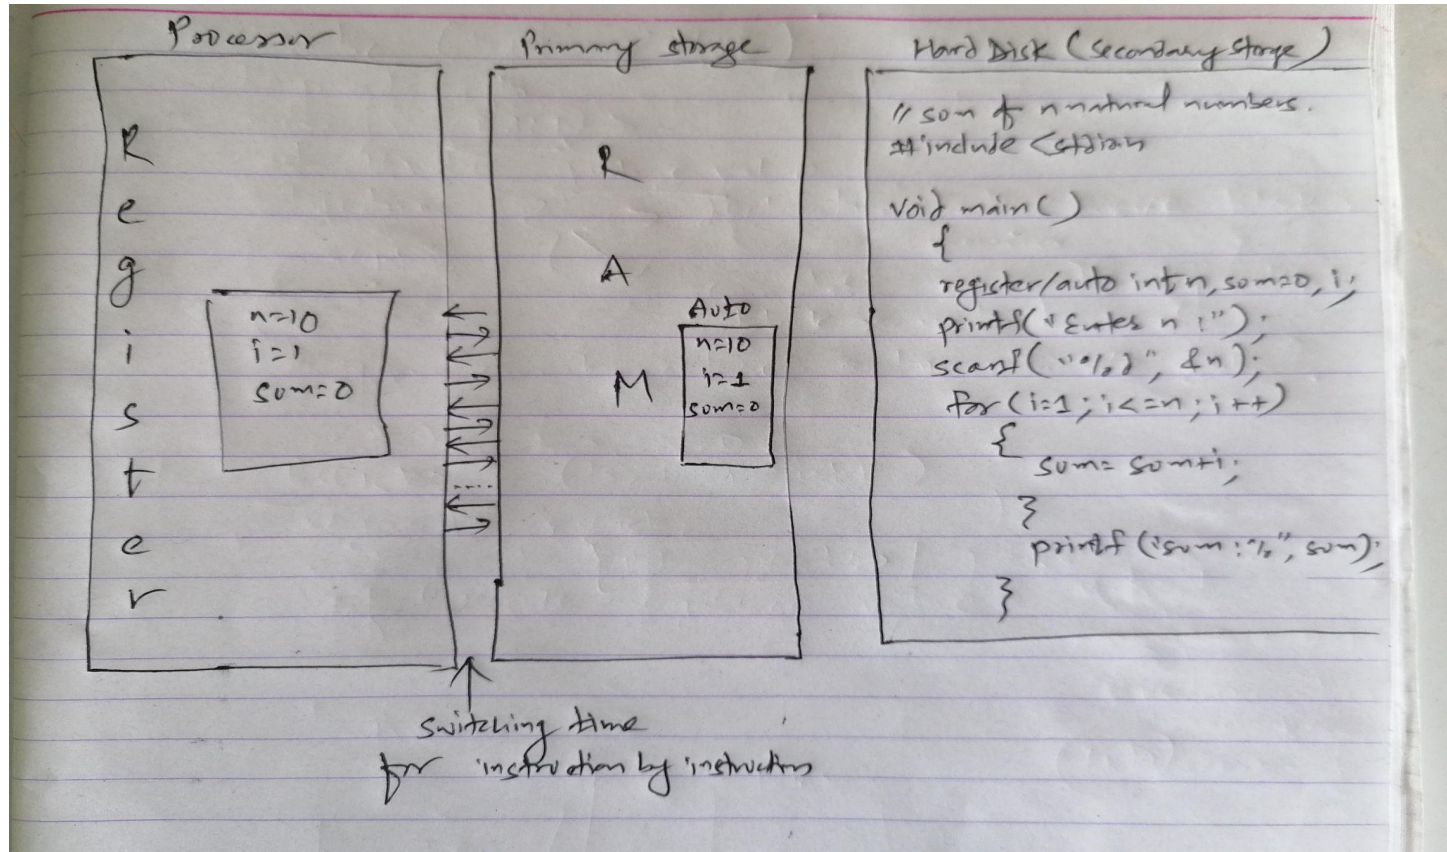 Processor
Register
n=10
i=1
sum=0
Primary storage
RAM
Auto
n=10
i=1
sum=0
Hard Disk (Secondary Storge)
// som of n natural numbers.
#include <stdio.h>
void main()
{
register/auto int n, som=0, i;
printf("Enter n :");
scanf("%d", &n);
for (i=1; i<=n; i++)
{
som= som+i;
}
printf("sum :%", som);
}
.....
switching time
for instruction by instruction